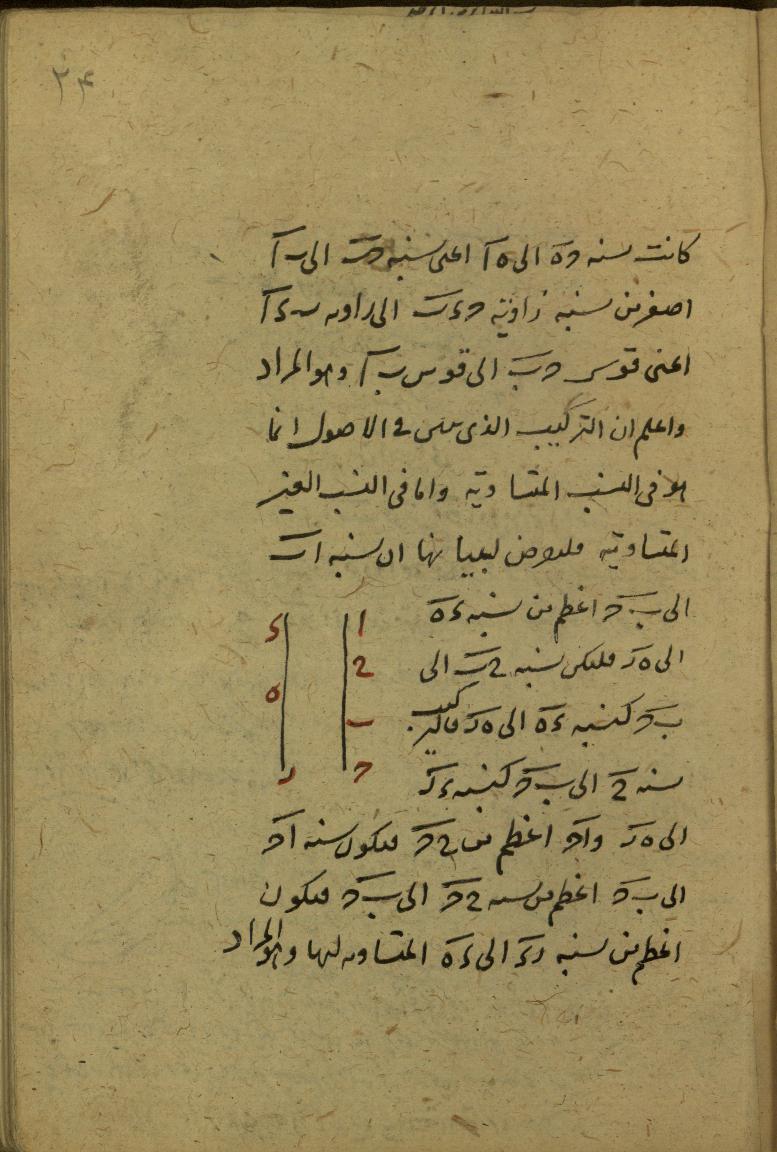 ٢۴
كانت نسبه جه الى ه ا اعنى نسبه جب الى ب ا
اصغر من نسبه زاوية جءب الى زاويه بءا
اعنى قوس جب الى قوس ب ا وهو المراد
واعلم ان التركيب الذى فى الاصول انما
هو فى النسب المتساوية واما فى النسب الغير
المتساوية فلنعرض لبيانها ان نسبه اب
الى بج اعظم من نسبه ءه
الى هر فليكن نسبه حب الى
بج كنسبه ءه الى هر فبالتركيب
نسبه حج الى بج كنسبه ءر
الى هر واج اعظم من حج فيكون نسبه اج
الى بج اعظم من نسبه حج الى بج فيكون
اعظم من نسبه رء الى ءه المتساويه لها وهو المراد
ا
ح
ب
ج
ء
ه
ر